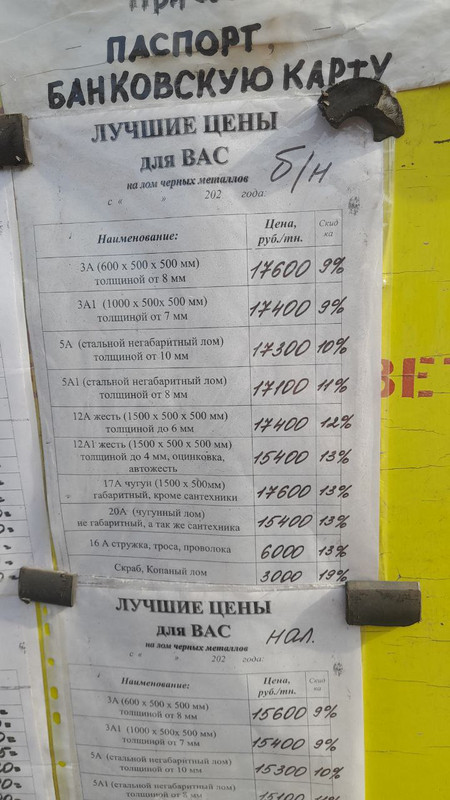 ПАСПОРТ,
БАНКОВСКУЮ КАРТУ
ЛУЧШИЕ ЦЕНЫ
для ВАС
б/н
на лом черных металлов
с « » 202 года:
Наименование: Цена, руб./тн. Скид ка
3А (600 х 500 х 500 мм)
толщиной от 8 мм 17600 9%
3А1 (1000 х 500х 500 мм)
толщиной от 7 мм 17400 9%
5А (стальной негабаритный лом)
толщиной от 10 мм 17300 10%
5А1 (стальной негабаритный лом)
толщиной от 8 мм 17100 11%
12А жесть (1500 х 500 х 500 мм)
толщиной до 6 мм 17400 12%
12А1 жесть (1500 х 500 х 500 мм)
толщиной до 4 мм, оцинковка,
автожесть 15400 13%
17А чугун (1500 х 500мм)
габаритный, кроме сантехники 17600 13%
20А (чугунный лом)
не габаритный, а так же сантехника 15400 13%
16 А стружка, троса, проволока 6000 13%
Скраб, Копаный лом 3000 19%
ЛУЧШИЕ ЦЕНЫ
для ВАС
нал.
на лом черных металлов
с « » 202 года:
Наименование: Цена, руб./тн. Скид ка
3А (600 х 500 х 500 мм)
толщиной от 8 мм 15600 9%
3А1 (1000 х 500х 500 мм)
толщиной от 7 мм 15400 9%
5А (стальной негабаритный лом)
толщиной от 10 мм 15300 10%
5А1 (стальной негабаритный лом)